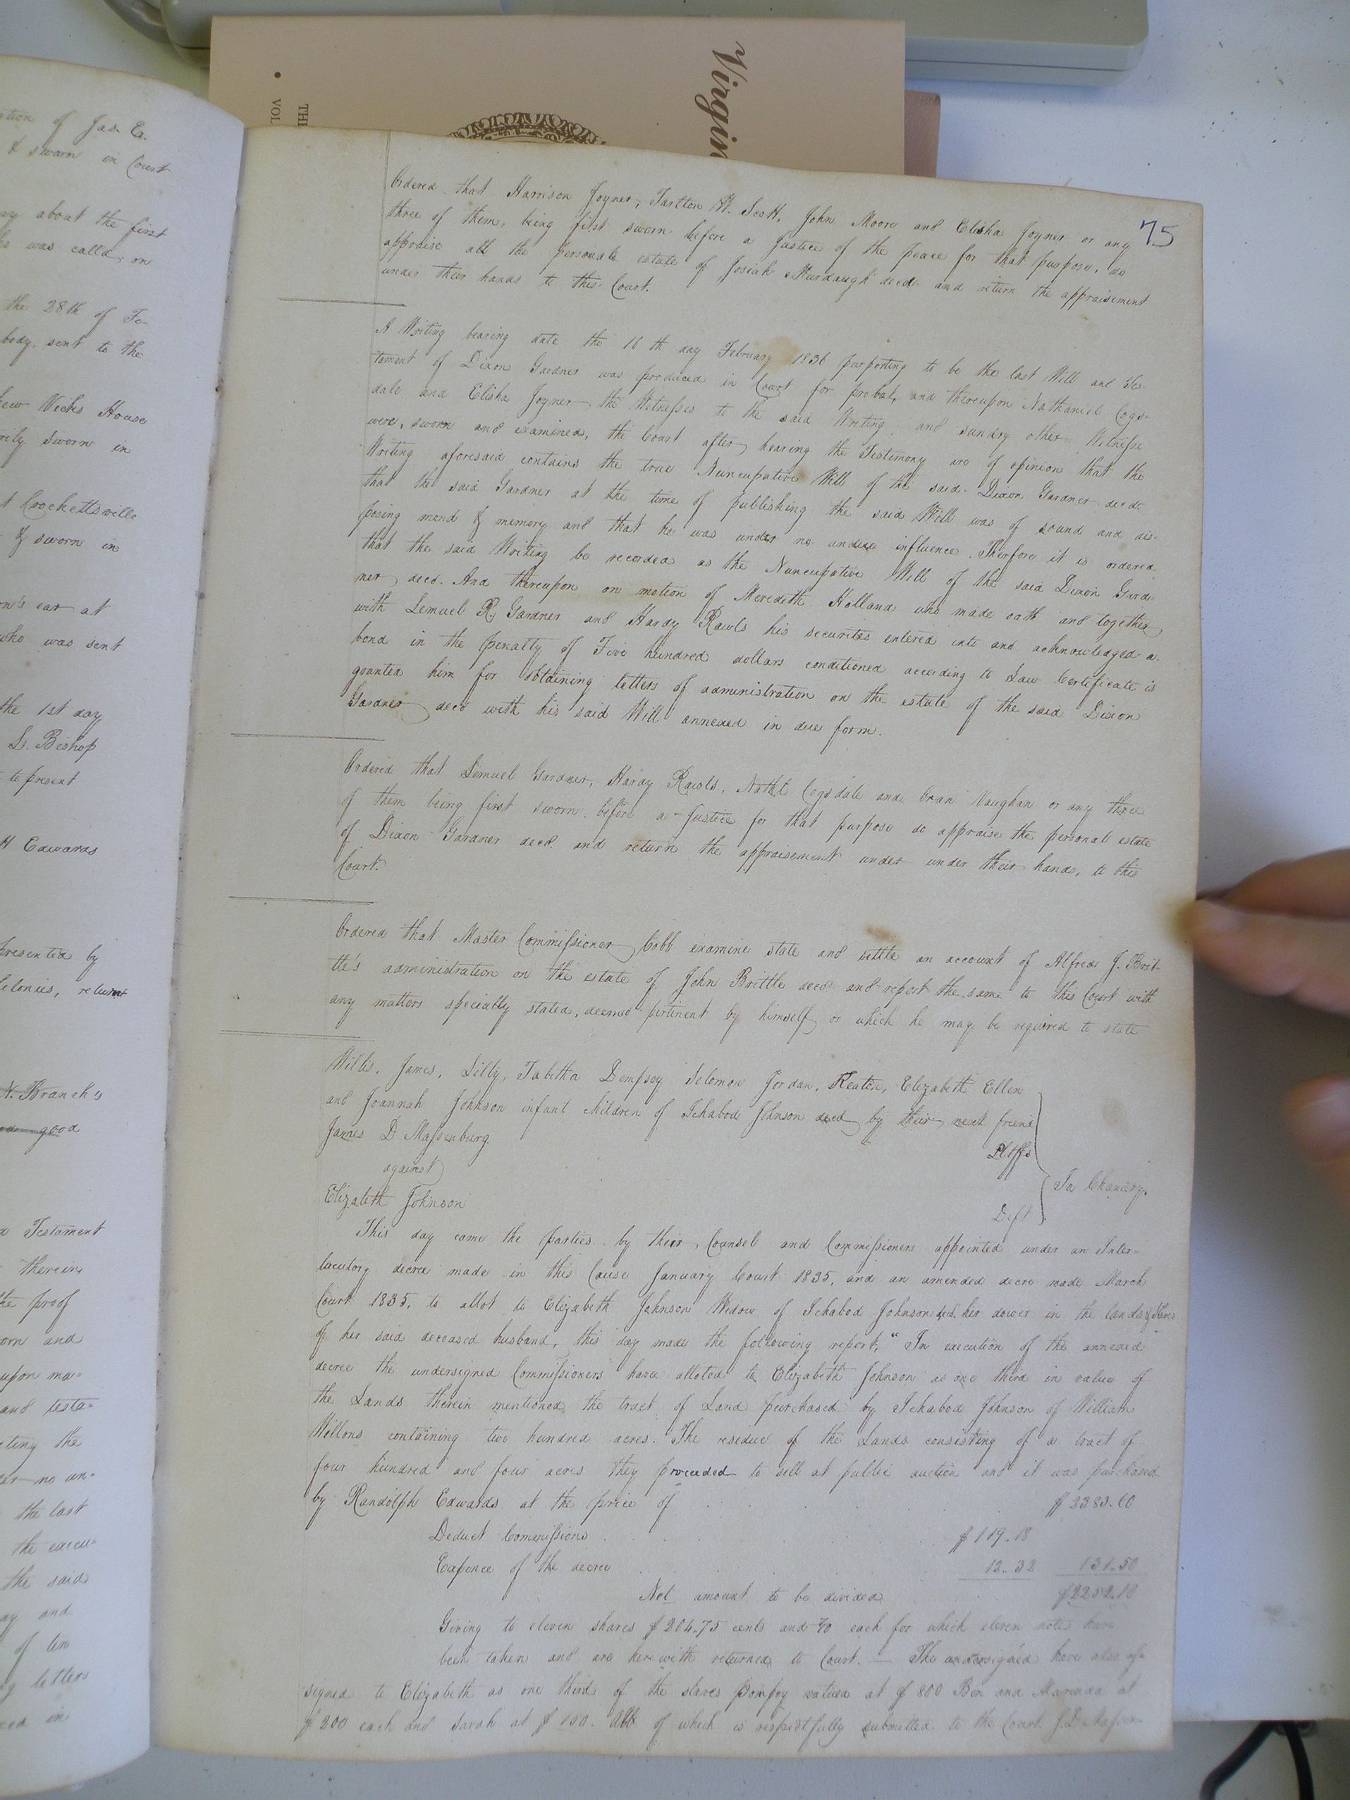 ation of Jas. E.
& sworn in Court
ay about the first
was called, on
the 28th of Fe-
body. sent to the
Wicks House
sworn in
Crockettsville
& sworn in
ear at
who was sent
the 1st day
L. Bishop
to present
H Edwards
presented by
felonies, return
N. Branch's
good
Testament
therein
the proof
orn and
upon mo-
and testa-
ting the
the last
the execu-
the said
ay and
of ten
letters
in
Virgin
THE
VOL
75
Ordered that Harrison Joyner, Tartton W. Scott, John Moore and Elisha Joyner or any
three of them, being first sworn before a Justice of the peace for that purpose, do
appraise all the personale estate of Josiah Murdaugh decd. and return the appraisement
under their hands to this Court.
A Writing bearing date the 16th day February 1836 purporting to be the last Will and Tes-
tament of Dixon Gardner was produced in Court for probat, and thereupon Nathaniel Cogs-
dale and Elisha Joyner the Witnesses to the said Writing and sundry other Witnesses
were, sworn and examined, the Court after hearing the Testimony are of opinion that the
Writing aforesaid contains the true Nuncupative Will of the said Dixon Gardner decd.
that the said Gardner at the time of publishing the said Will was of sound and dis-
posing mind & memory and that he was under no undue influence. Therfore it is ordered
that the said Writing be recorded as the Nuncupative Will of the said Dixon Gard-
ner decd. And thereupon on motion of Meredith Holland who made oath and together
with Lemuel R. Gardner and Hardy Rawls his securities entered into and acknowledged a
bond in the penalty of Five hundred dollars conditioned according to Law Certificate is
granted him for obtaining letters of administration on the estate of the said Dixon
Gardner decd with his said Will annexed in due form.
Ordered that Lemuel Gardner, Hardy Rawls, Nathl. Cogsdale and Oran Vaughan or any three
of them being first sworn before a Justice for that purpose do appraise the personal estate
of Dixon Gardner decd and return the appraisement under under their hands, to this
Court.
Ordered that Master Commissioner Cobb examine state and settle an account of Alfred J. Brit-
tle's administration on the estate of John Brittle decd and report the same to this Court with
any matters specially stated, deemed pertinent by himself or which he may be required to state
Willis, James, Lilly, Tabitha Dempsey Solomon Jordan, Keaton, Elizabeth Ellen
and Joannah Johnson infant children of Ichabod Johnson decd by their next friend
James D Massenburg
Pltffs
against
In Chancery.
Elizabeth Johnson
Deft
This day came the parties by their Counsel and Commissioners appointed under an Inter-
locutory decree made in this Cause January Court 1835, and an amended decree made March
Court 1835, to allot to Elizabeth Johnson Widow of Ichabod Johnson decd. her dower in the lands & slaves
of her said deceased husband, this day made the following report, "In execution of the annexed
decree the undersigned Commissioners have alloted to Elizabeth Johnson as one third in value of
the Lands therein mentioned the tract of Land purchased by Ichabod Johnson of William
Wellons containing two hundred acres. The residue of the Lands consisting of a tract of
four hundred and four acres they proceeded to sell at public auction and it was purchased
by Randolph Edwards at the price of $2383.60
Deduct Commissions $119.18
Expence of the decree 12.32 131.50
Net amount to be divided $2252.10
Giving to eleven shares $204.75 cents and each for which eleven notes have
been taken and are herewith returned to Court. — The undersigned have also as-
signed to Elizabeth as one third of the slaves Pompey valued at $800 Ben and Marinda at
$200 each and Sarah at $100. All of which is respectfully submitted to the Court J. D. Massen-